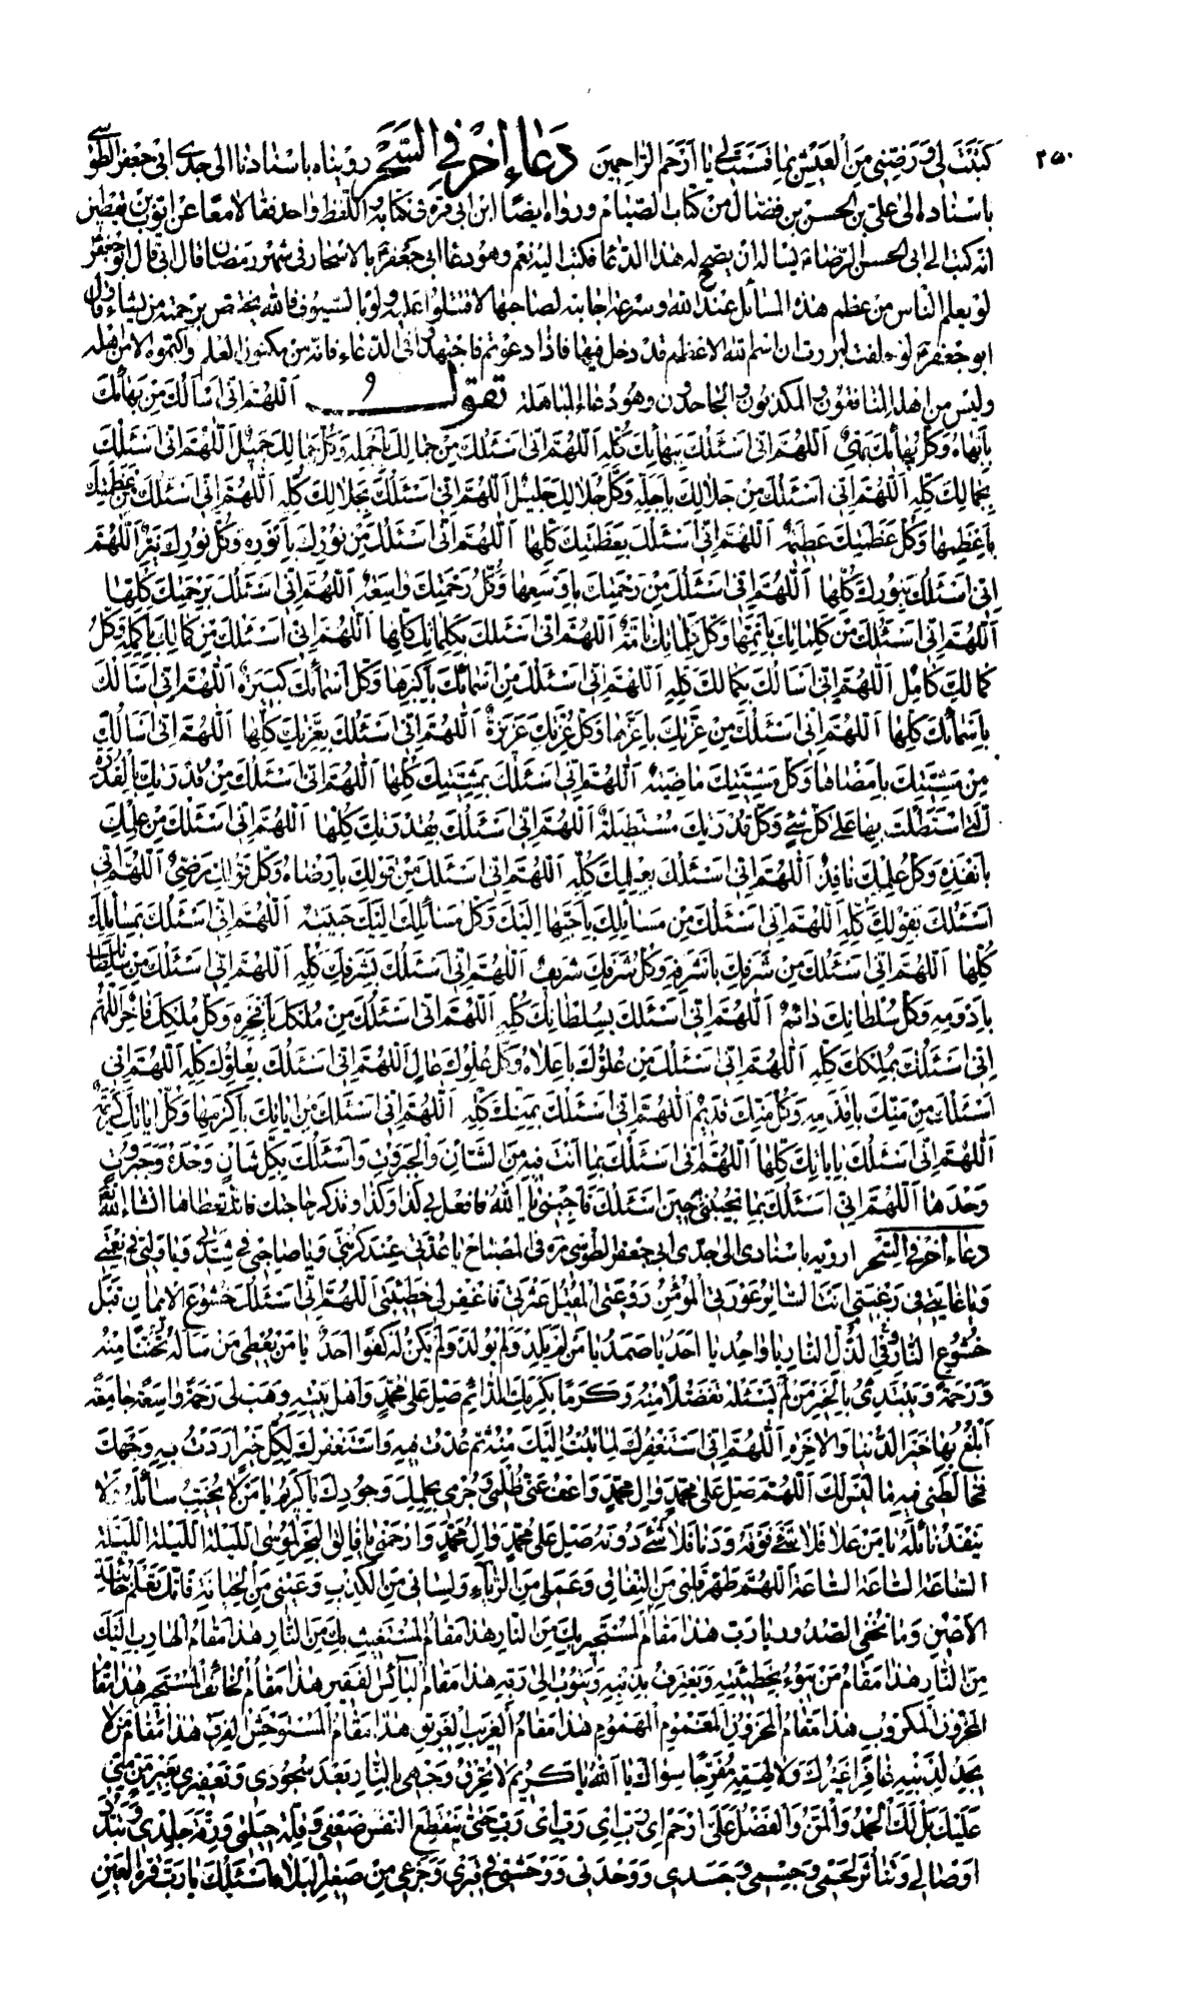 ٢٥٠
كَتَبْتَ لِي وَرَضِّنِي مِنَ الْعَيْشِ بِمَا قَسَمْتَ لِي يَا أَرْحَمَ الرَّاحِمِينَ دُعَاءٌ آخَرُ فِي السَّحَرِ رويناه باسنادنا الى جدى ابى جعفر الطوسى
باسناده الى على بن الحسن بن فضال من كتاب الصيام ورواه ايضًا ابن ابى قرة فى كتابه واللفظ واحد فقالا معًا عن ايوب بن يقطين
انه كتب الى ابى الحسن الرضا ع يسأله ان يصحح له هذا الدعاء فكتب اليه نعم وهو دعاء ابى جعفر ع بالاسحار فى شهر رمضان قال ابى قال ابو جعفر
لو يعلم الناس من عظم هذه المسائل عند الله وسرعة اجابته لصاحبها لاقتتلوا عليه ولو بالسيوف فالله يختص برحمته من يشاء وقال
ابو جعفر ع لو حلفت لبررت ان اسم الله الاعظم قد دخل فيها فاذا دعوتم فاجتهدوا فى الدعاء فانه من مكنون العلم واكتموه الا من اهله
وليس من اهله المنافقون والمكذبون والجاحدون وهو دعاء المباهلة تقول اَللّهُمَّ اِنّى اَسْاَلُكَ مِنْ بَهائِكَ
بِاَبْهاهُ وَكُلُّ بَهائِكَ بَهِىٌّ اَللّهُمَّ اِنّى اَسْئَلُكَ بِبَهائِكَ كُلِّهِ اَللّهُمَّ اِنّى اَسْئَلُكَ مِنْ جَمالِكَ بِاَجْمَلِهِ وَكُلُّ جَمالِكَ جَميلٌ اَللّهُمَّ اِنّى اَسْئَلُكَ
بِجَمالِكَ كُلِّهِ اَللّهُمَّ اِنّى اَسْئَلُكَ مِنْ جَلالِكَ بِاَجَلِّهِ وَكُلُّ جَلالِكَ جَليلٌ اَللّهُمَّ اِنّى اَسْئَلُكَ بِجَلالِكَ كُلِّهِ اَللّهُمَّ اِنّى اَسْئَلُكَ مِنْ عَظَمَتِكَ
بِاَعْظَمِها وَكُلُّ عَظَمَتِكَ عَظيمَةٌ اَللّهُمَّ اِنّى اَسْئَلُكَ بِعَظَمَتِكَ كُلِّها اَللّهُمَّ اِنّى اَسْئَلُكَ مِنْ نُورِكَ بِاَنْوَرِهِ وَكُلُّ نُورِكَ نَيِّرٌ اَللّهُمَّ
اِنّى اَسْئَلُكَ بِنُورِكَ كُلِّها اَللّهُمَّ اِنّى اَسْئَلُكَ مِنْ رَحْمَتِكَ بِاَوْسَعِها وَكُلُّ رَحْمَتِكَ واسِعَةٌ اَللّهُمَّ اِنّى اَسْئَلُكَ بِرَحْمَتِكَ كُلِّها
اَللّهُمَّ اِنّى اَسْئَلُكَ مِنْ كَلِماتِكَ بِاَتَمِّها وَكُلُّ كَلِماتِكَ تامَّةٌ اَللّهُمَّ اِنّى اَسْئَلُكَ بِكَلِماتِكَ كُلِّها اَللّهُمَّ اِنّى اَسْئَلُكَ مِنْ كَمالِكَ بِاَكْمَلِهِ وَكُلُّ
كَمالِكَ كامِلٌ اَللّهُمَّ اِنّى اَسْاَلُكَ بِكَمالِكَ كُلِّهِ اَللّهُمَّ اِنّى اَسْئَلُكَ مِنْ اَسْمائِكَ بِاَكْبَرِها وَكُلُّ اَسْمائِكَ كَبيرَةٌ اَللّهُمَّ اِنّى اَسْاَلُكَ
بِاَسْمائِكَ كُلِّها اَللّهُمَّ اِنّى اَسْئَلُكَ مِنْ عِزَّتِكَ بِاَعَزِّها وَكُلُّ عِزَّتِكَ عَزيزَةٌ اَللّهُمَّ اِنّى اَسْئَلُكَ بِعِزَّتِكَ كُلِّها اَللّهُمَّ اِنّى اَسْاَلُكَ
مِنْ مَشِيَّتِكَ بِاَمْضاها وَكُلُّ مَشِيَّتِكَ ماضِيَةٌ اَللّهُمَّ اِنّى اَسْئَلُكَ بِمَشِيَّتِكَ كُلِّها اَللّهُمَّ اِنّى اَسْئَلُكَ مِنْ قُدْرَتِكَ بِالْقُدْرَةِ
الَّتى اسْتَطَلْتَ بِها عَلى كُلِّ شَىْءٍ وَكُلُّ قُدْرَتِكَ مُسْتَطيلَةٌ اَللّهُمَّ اِنّى اَسْئَلُكَ بِقُدْرَتِكَ كُلِّها اَللّهُمَّ اِنّى اَسْئَلُكَ مِنْ عِلْمِكَ
بِاَنْفَذِهِ وَكُلُّ عِلْمِكَ نافِذٌ اَللّهُمَّ اِنّى اَسْئَلُكَ بِعِلْمِكَ كُلِّهِ اَللّهُمَّ اِنّى اَسْئَلُكَ مِنْ قَوْلِكَ بِاَرْضاهُ وَكُلُّ قَوْلِكَ رَضِىٌّ اَللّهُمَّ اِنّى
اَسْئَلُكَ بِقَوْلِكَ كُلِّهِ اَللّهُمَّ اِنّى اَسْئَلُكَ مِنْ مَسائِلِكَ بِاَحَبِّها اِلَيْكَ وَكُلُّ مَسائِلِكَ اِلَيْكَ حَبيبَةٌ اَللّهُمَّ اِنّى اَسْئَلُكَ بِمَسائِلِكَ
كُلِّها اَللّهُمَّ اِنّى اَسْئَلُكَ مِنْ شَرَفِكَ بِاَشْرَفِهِ وَكُلُّ شَرَفِكَ شَريفٌ اَللّهُمَّ اِنّى اَسْئَلُكَ بِشَرَفِكَ كُلِّهِ اَللّهُمَّ اِنّى اَسْئَلُكَ مِنْ سُلْطانِكَ
بِاَدْوَمِهِ وَكُلُّ سُلْطانِكَ دائِمٌ اَللّهُمَّ اِنّى اَسْئَلُكَ بِسُلْطانِكَ كُلِّهِ اَللّهُمَّ اِنّى اَسْئَلُكَ مِنْ مُلْكِكَ بِاَفْخَرِهِ وَكُلُّ مُلْكِكَ فاخِرٌ اَللّهُمَّ
اِنّى اَسْئَلُكَ بِمُلْكِكَ كُلِّهِ اَللّهُمَّ اِنّى اَسْئَلُكَ مِنْ عُلُوِّكَ بِاَعْلاهُ وَكُلُّ عُلُوِّكَ عالٍ اَللّهُمَّ اِنّى اَسْئَلُكَ بِعُلُوِّكَ كُلِّهِ اَللّهُمَّ اِنّى
اَسْئَلُكَ مِنْ مَنِّكَ بِاَقْدَمِهِ وَكُلُّ مَنِّكَ قَديمٌ اَللّهُمَّ اِنّى اَسْئَلُكَ بِمَنِّكَ كُلِّهِ اَللّهُمَّ اِنّى اَسْئَلُكَ مِنْ اياتِكَ بِاَكْرَمِها وَكُلُّ اياتِكَ كَريمَةٌ
اَللّهُمَّ اِنّى اَسْئَلُكَ بِاياتِكَ كُلِّها اَللّهُمَّ اِنّى اَسْئَلُكَ بِما اَنْتَ فيهِ مِنَ الشَّأنِ وَالْجَبَرُوتِ وَاَسْئَلُكَ بِكُلِّ شَأنٍ وَحْدَهُ وَجَبَرُوتٍ
وَحْدَها اَللّهُمَّ اِنّى اَسْئَلُكَ بِما تُجيبُنى حينَ اَسْئَلُكَ فَاَجِبْنى يا اَللهُ فافعل بى كذا وكذا وتذكر حاجتك فانك تعطاها انشاء الله
دعاء آخر فى السحر ارويه باسنادى الى جدى ابى جعفر الطوسى ره فى المصباح يا عُدَّتى عِنْدَ كُرْبَتى وَيا صاحِبى فى شِدَّتى وَيا وَلِيّى فى نِعْمَتى
وَيا غايَتى فى رَغْبَتى اَنْتَ السّاتِرُ عَوْرَتى الْمُؤْمِنُ رَوْعَتى الْمُقيلُ عَثْرَتى فَاغْفِرْ لى خَطيئَتى اَللّهُمَّ اِنّى اَسْئَلُكَ خُشُوعَ الْايمانِ قَبْلَ
خُشُوعِ الذُّلِّ فِى النّارِ يا واحِدُ يا اَحَدُ يا صَمَدُ يا مَنْ لَمْ يَلِدْ وَلَمْ يُولَدْ وَلَمْ يَكُنْ لَهُ كُفُوًا اَحَدٌ يا مَنْ يُعْطى مَنْ سَأَلَهُ تَحَنُّنًا مِنْهُ
وَرَحْمَةً وَيَبْتَدِئُ بِالْخَيْرِ مَنْ لَمْ يَسْئَلْهُ تَفَضُّلًا مِنْهُ وَكَرَمًا بِكَرَمِكَ الدّائِمِ صَلِّ عَلى مُحَمَّدٍ وَاَهْلِ بَيْتِهِ وَهَبْ لى رَحْمَةً واسِعَةً جامِعَةً
اَبْلُغُ بِها خَيْرَ الدُّنْيا وَالْاخِرَةِ اَللّهُمَّ اِنّى اَسْتَغْفِرُكَ لِما تُبْتُ اِلَيْكَ مِنْهُ ثُمَّ عُدْتُ فيهِ وَاَسْتَغْفِرُكَ لِكُلِّ خَيْرٍ اَرَدْتُ بِهِ وَجْهَكَ
فَخالَطَنى فيهِ ما لَيْسَ لَكَ اَللّهُمَّ صَلِّ عَلى مُحَمَّدٍ وَالِ مُحَمَّدٍ وَاعْفُ عَنْ ظُلْمى وَجُرْمى بِحِلْمِكَ وَجُودِكَ يا كَريمُ يا مَنْ لا يُخَيِّبُ سائِلَهُ وَلا
يَنْفَدُ نائِلُهُ يا مَنْ عَلا فَلا شَىْءَ فَوْقَهُ وَدَنا فَلا شَىْءَ دُونَهُ صَلِّ عَلى مُحَمَّدٍ وَالِ مُحَمَّدٍ وَارْحَمْنى يا فالِقَ الْبَحْرِ لِمُوسى اللَّيْلَةَ اللَّيْلَةَ اللَّيْلَةَ
السّاعَةَ السّاعَةَ السّاعَةَ اَللّهُمَّ طَهِّرْ قَلْبى مِنَ النِّفاقِ وَعَمَلى مِنَ الرِّياءِ وَلِسانى مِنَ الْكَذِبِ وَعَيْنى مِنَ الْخِيانَةِ فَاِنَّكَ تَعْلَمُ خائِنَةَ
الْاَعْيُنِ وَما تُخْفِى الصُّدُورُ يا رَبِّ هذا مَقامُ الْمُسْتَجيرِ بِكَ مِنَ النّارِ هذا مَقامُ الْمُسْتَغيثِ بِكَ مِنَ النّارِ هذا مَقامُ الْهارِبِ اِلَيْكَ
مِنَ النّارِ هذا مَقامُ مَنْ يَبُوءُ بِخَطيئَتِهِ وَيَعْتَرِفُ بِذَنْبِهِ وَيَتُوبُ اِلى رَبِّهِ هذا مَقامُ الْبائِسِ الْفَقيرِ هذا مَقامُ الْخائِفِ الْمُسْتَجيرِ هذا مَقامُ
الْمَحْزُونِ الْمَكْرُوبِ هذا مَقامُ الْمَحْزُونِ الْمَغْمُومِ الْمَهْمُومِ هذا مَقامُ الْغَريبِ الْغَريقِ هذا مَقامُ الْمُسْتَوْحِشِ الْفَرِقِ هذا مَقامُ مَنْ لا
يَجِدُ لِذَنْبِهِ غافِرًا غَيْرَكَ وَلا لِهَمِّهِ مُفَرِّجًا سِواكَ يا اَللهُ يا كَريمُ لا تُحْرِقْ وَجْهى بِالنّارِ بَعْدَ سُجُودى وَتَعْفيرى بِغَيْرِ مَنٍّ مِنّى
عَلَيْكَ بَلْ لَكَ الْحَمْدُ وَالْمَنُّ وَالْفَضْلُ عَلَىَّ ارْحَمْ اَىْ رَبِّ اَىْ رَبِّ اَىْ رَبِّ حَتّى يَنْقَطِعَ النَّفَسُ ضَعْفى وَقِلَّةَ حيلَتى وَرِقَّةَ جِلْدى وَتَبَدُّدَ
اَوْصالى وَتَناثُرَ لَحْمى وَجِسْمى وَجَسَدى وَوَحْدَتى وَوَحْشَتى فى قَبْرى وَجَزَعى مِنْ صَغيرِ الْبَلاءِ اَسْئَلُكَ يا رَبِّ قُرَّةَ الْعَيْنِ